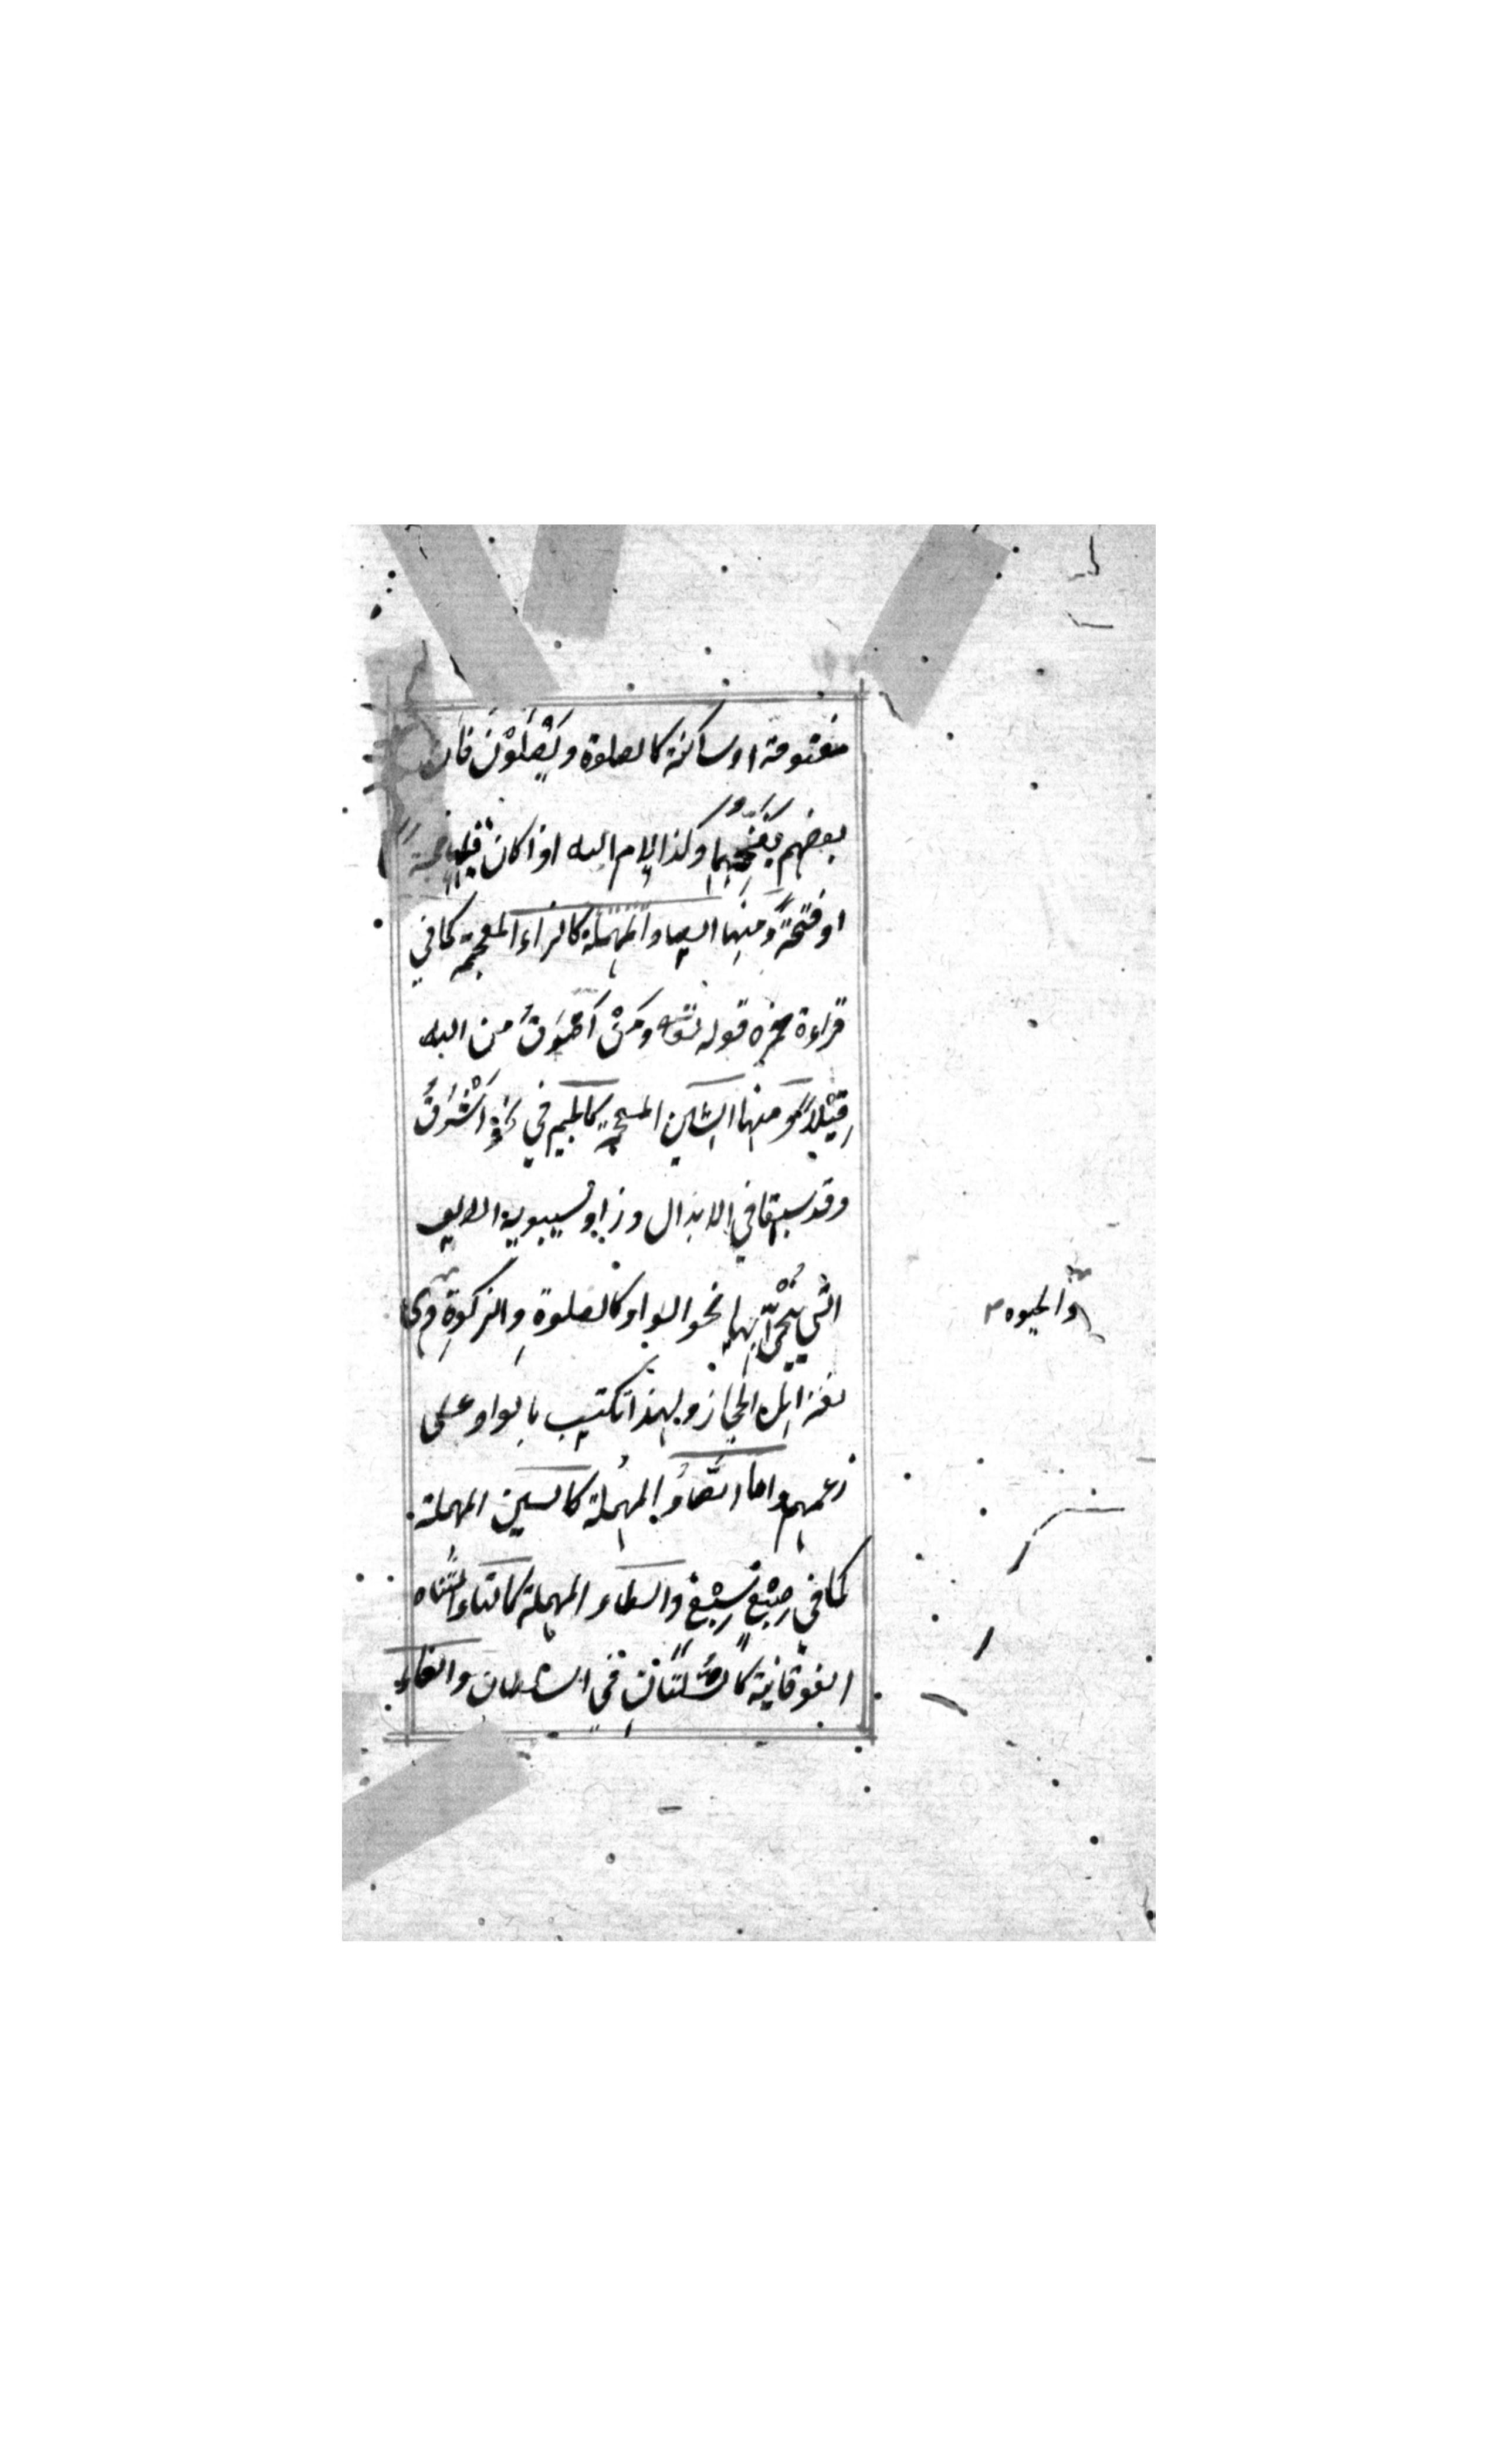 مفتوحة او ساكنة كالصلوة و يَصْلَوْنَ فان
بعضهم يفخمها وكذا لام الله اذا كان قبلها ضمة
او فتحة ومنها الصاد المهملة كالزاء المعجمة كما في
قراءة حمزه قوله تعالى ومَنْ أَصْدَقُ من الله
قِيْلاً ومنها الشين المعجمة كالجيم في نحو اَشْدَقُ
وقد سبقا في الابدال وزاد سيبويه الالف
التي يُنْحى بها نحو الواو كالصلوة والزكوة وهي
والحيوه
لغة اهل الحجاز ولهذا تكتب بالواو على
زعمهم واما الصادُ المهملة كالسين المهملة
كما في صِبْغ سِبْغ والطاء المهملة كالتاء المثناه
الفوقانية كالسلتان في السلطان والفاء